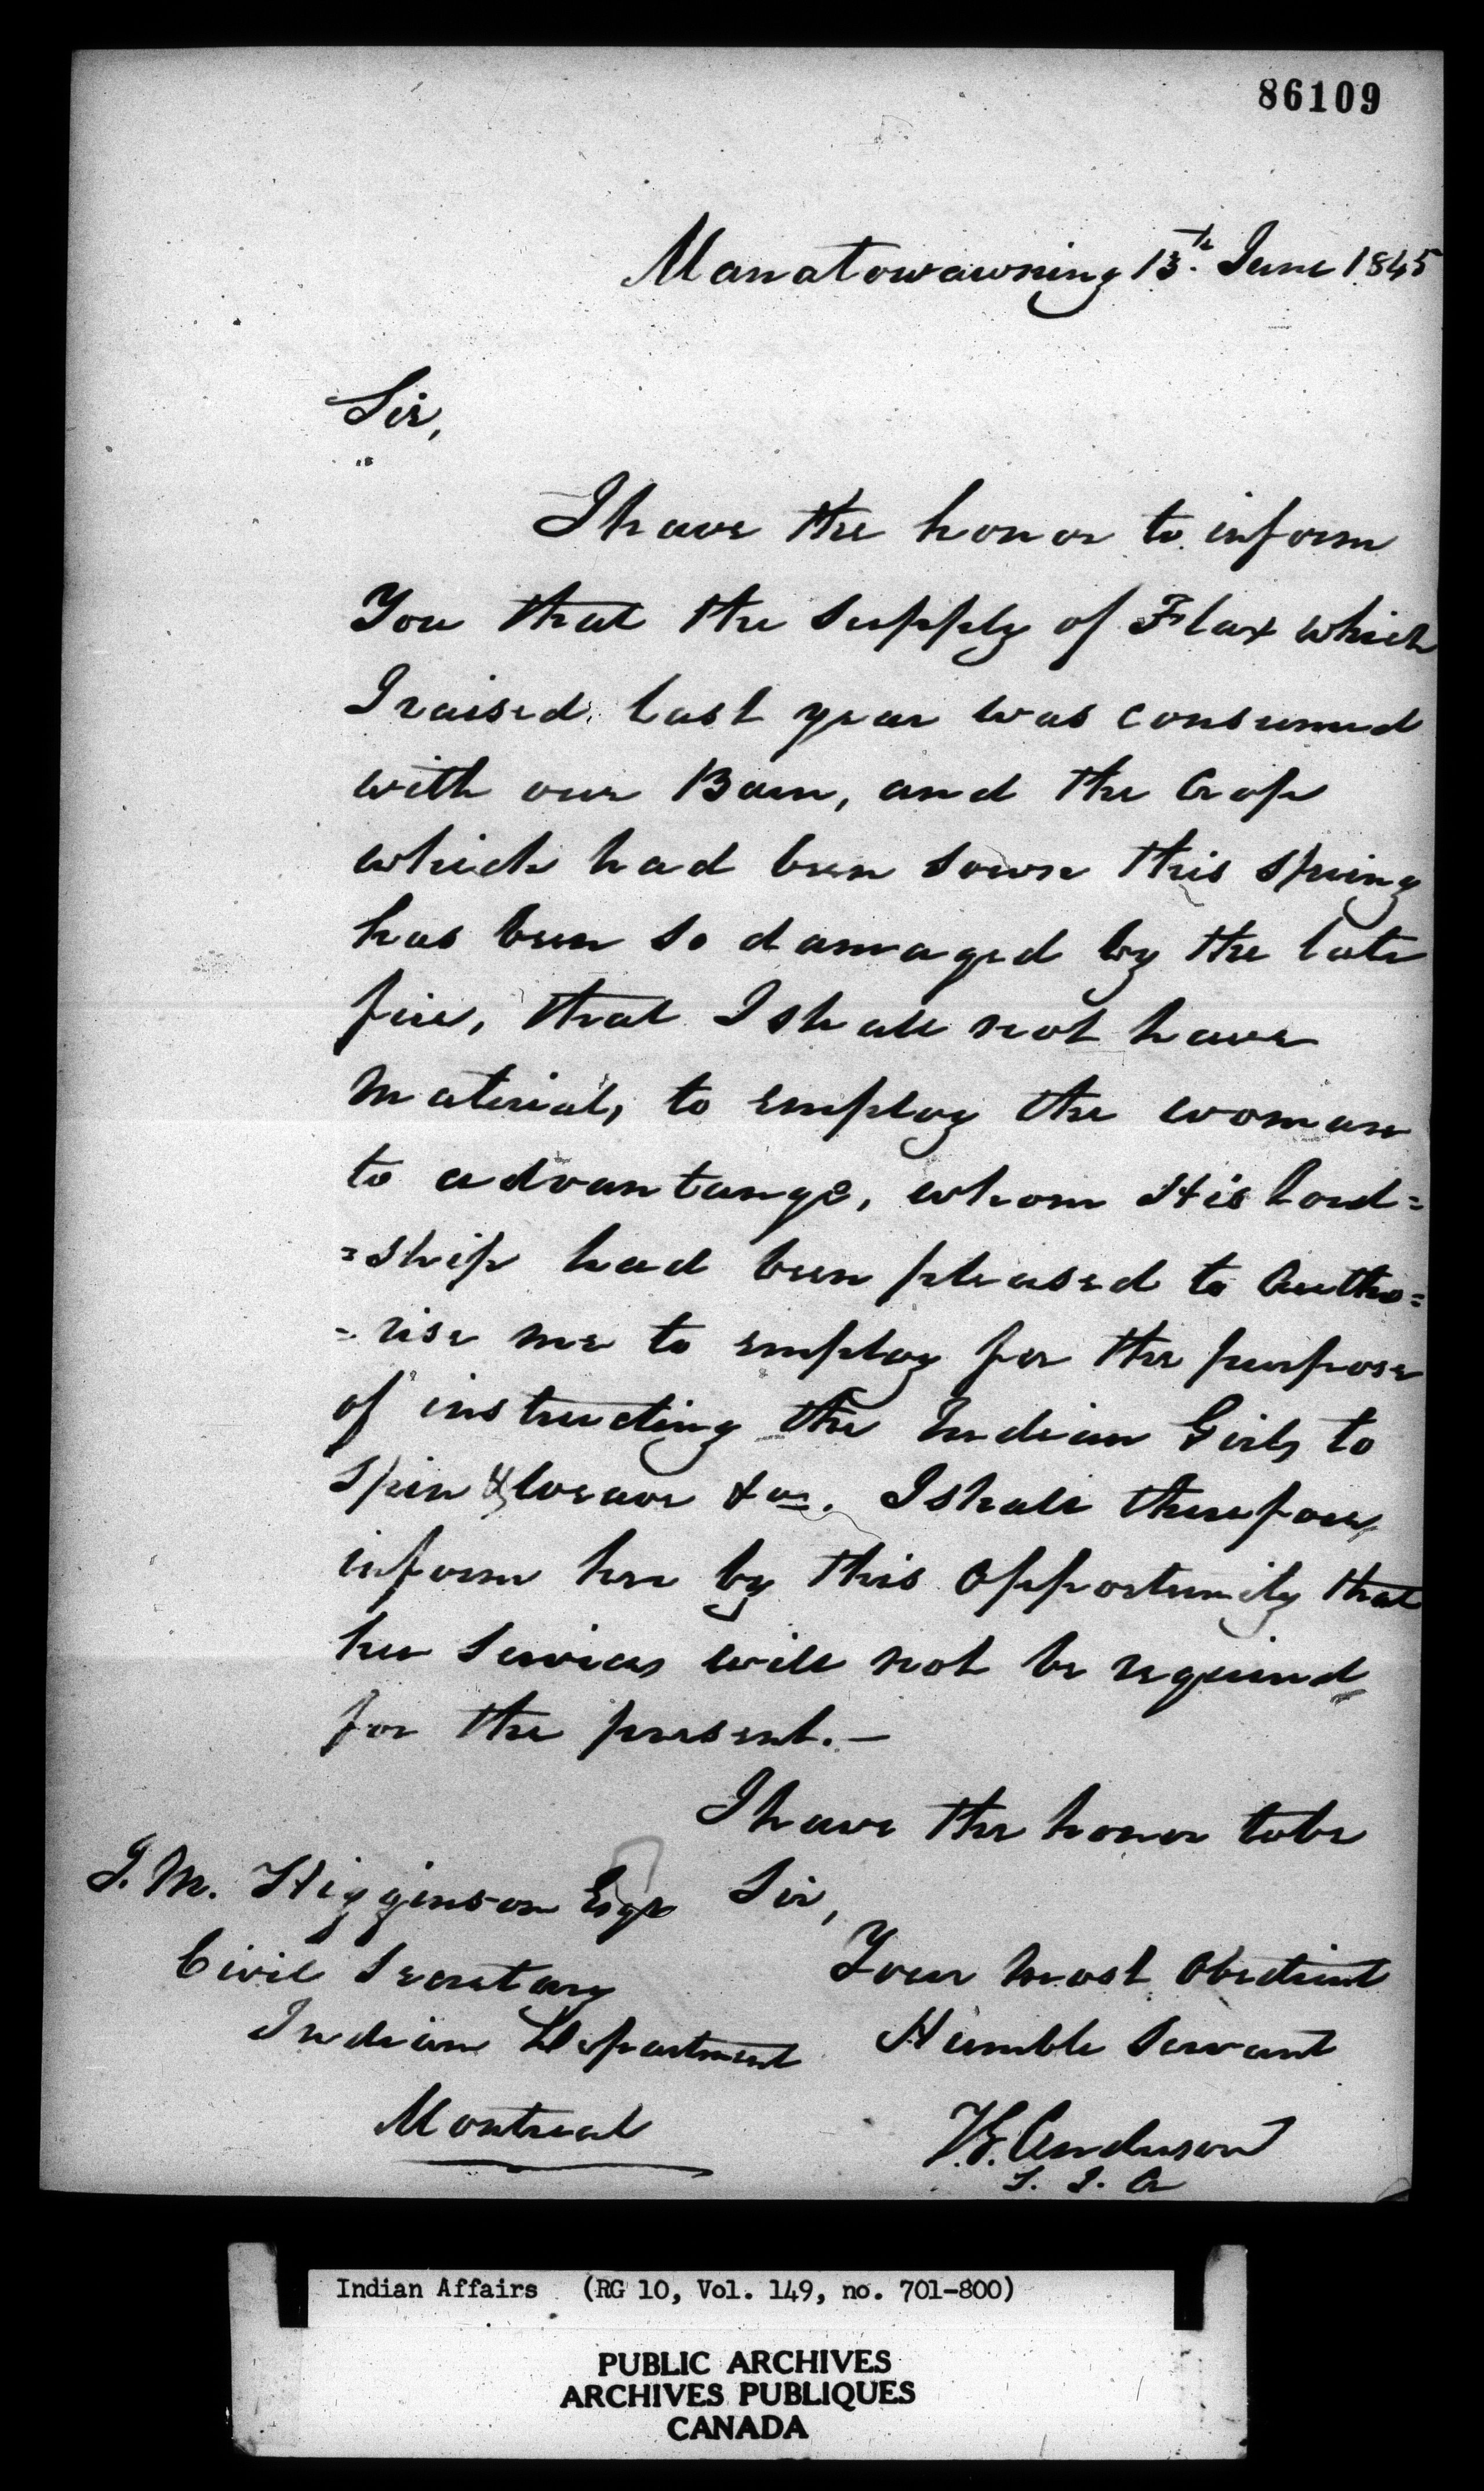 86109
Manatowawning 13th. June 1845
Sir,
I have the honor to inform
You that the Supply of Flax which
I raised last year was consumed
with our Barn, and the Crop
which had been sown this spring
has been so damaged by the late
fire, that I shall not have
Material, to employ the woman
to advantange, whom His Lord=
=ship had been pleased to Autho=
=rise me to employ for the purpose
of instructing the Indian Girls to
Spin & weave &c. I shall therefore,
inform her by this opportunity that
her Services will not be required
for the present.—
I have the honor to be
J. M. Higginson Esqr Sir,
Civil Secretary Your most Obedient
Indian Department Humble Servant
Montreal T.G. Anderson
S. I. A
Indian Affairs (RG 10, Vol. 149, no. 701-800)
PUBLIC ARCHIVES
ARCHIVES PUBLIQUES
CANADA